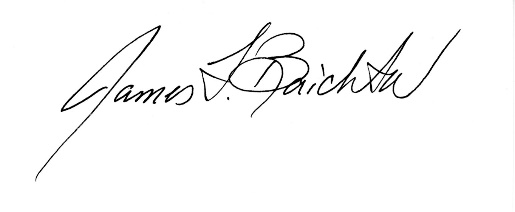 James L. Baichtal